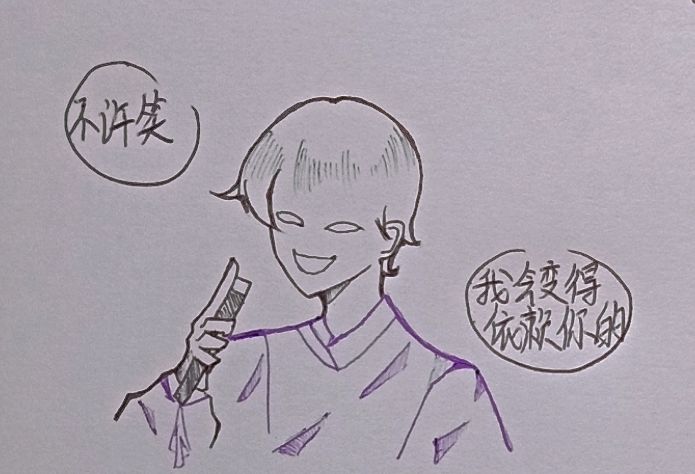 不许笑
我会变得
依赖你的